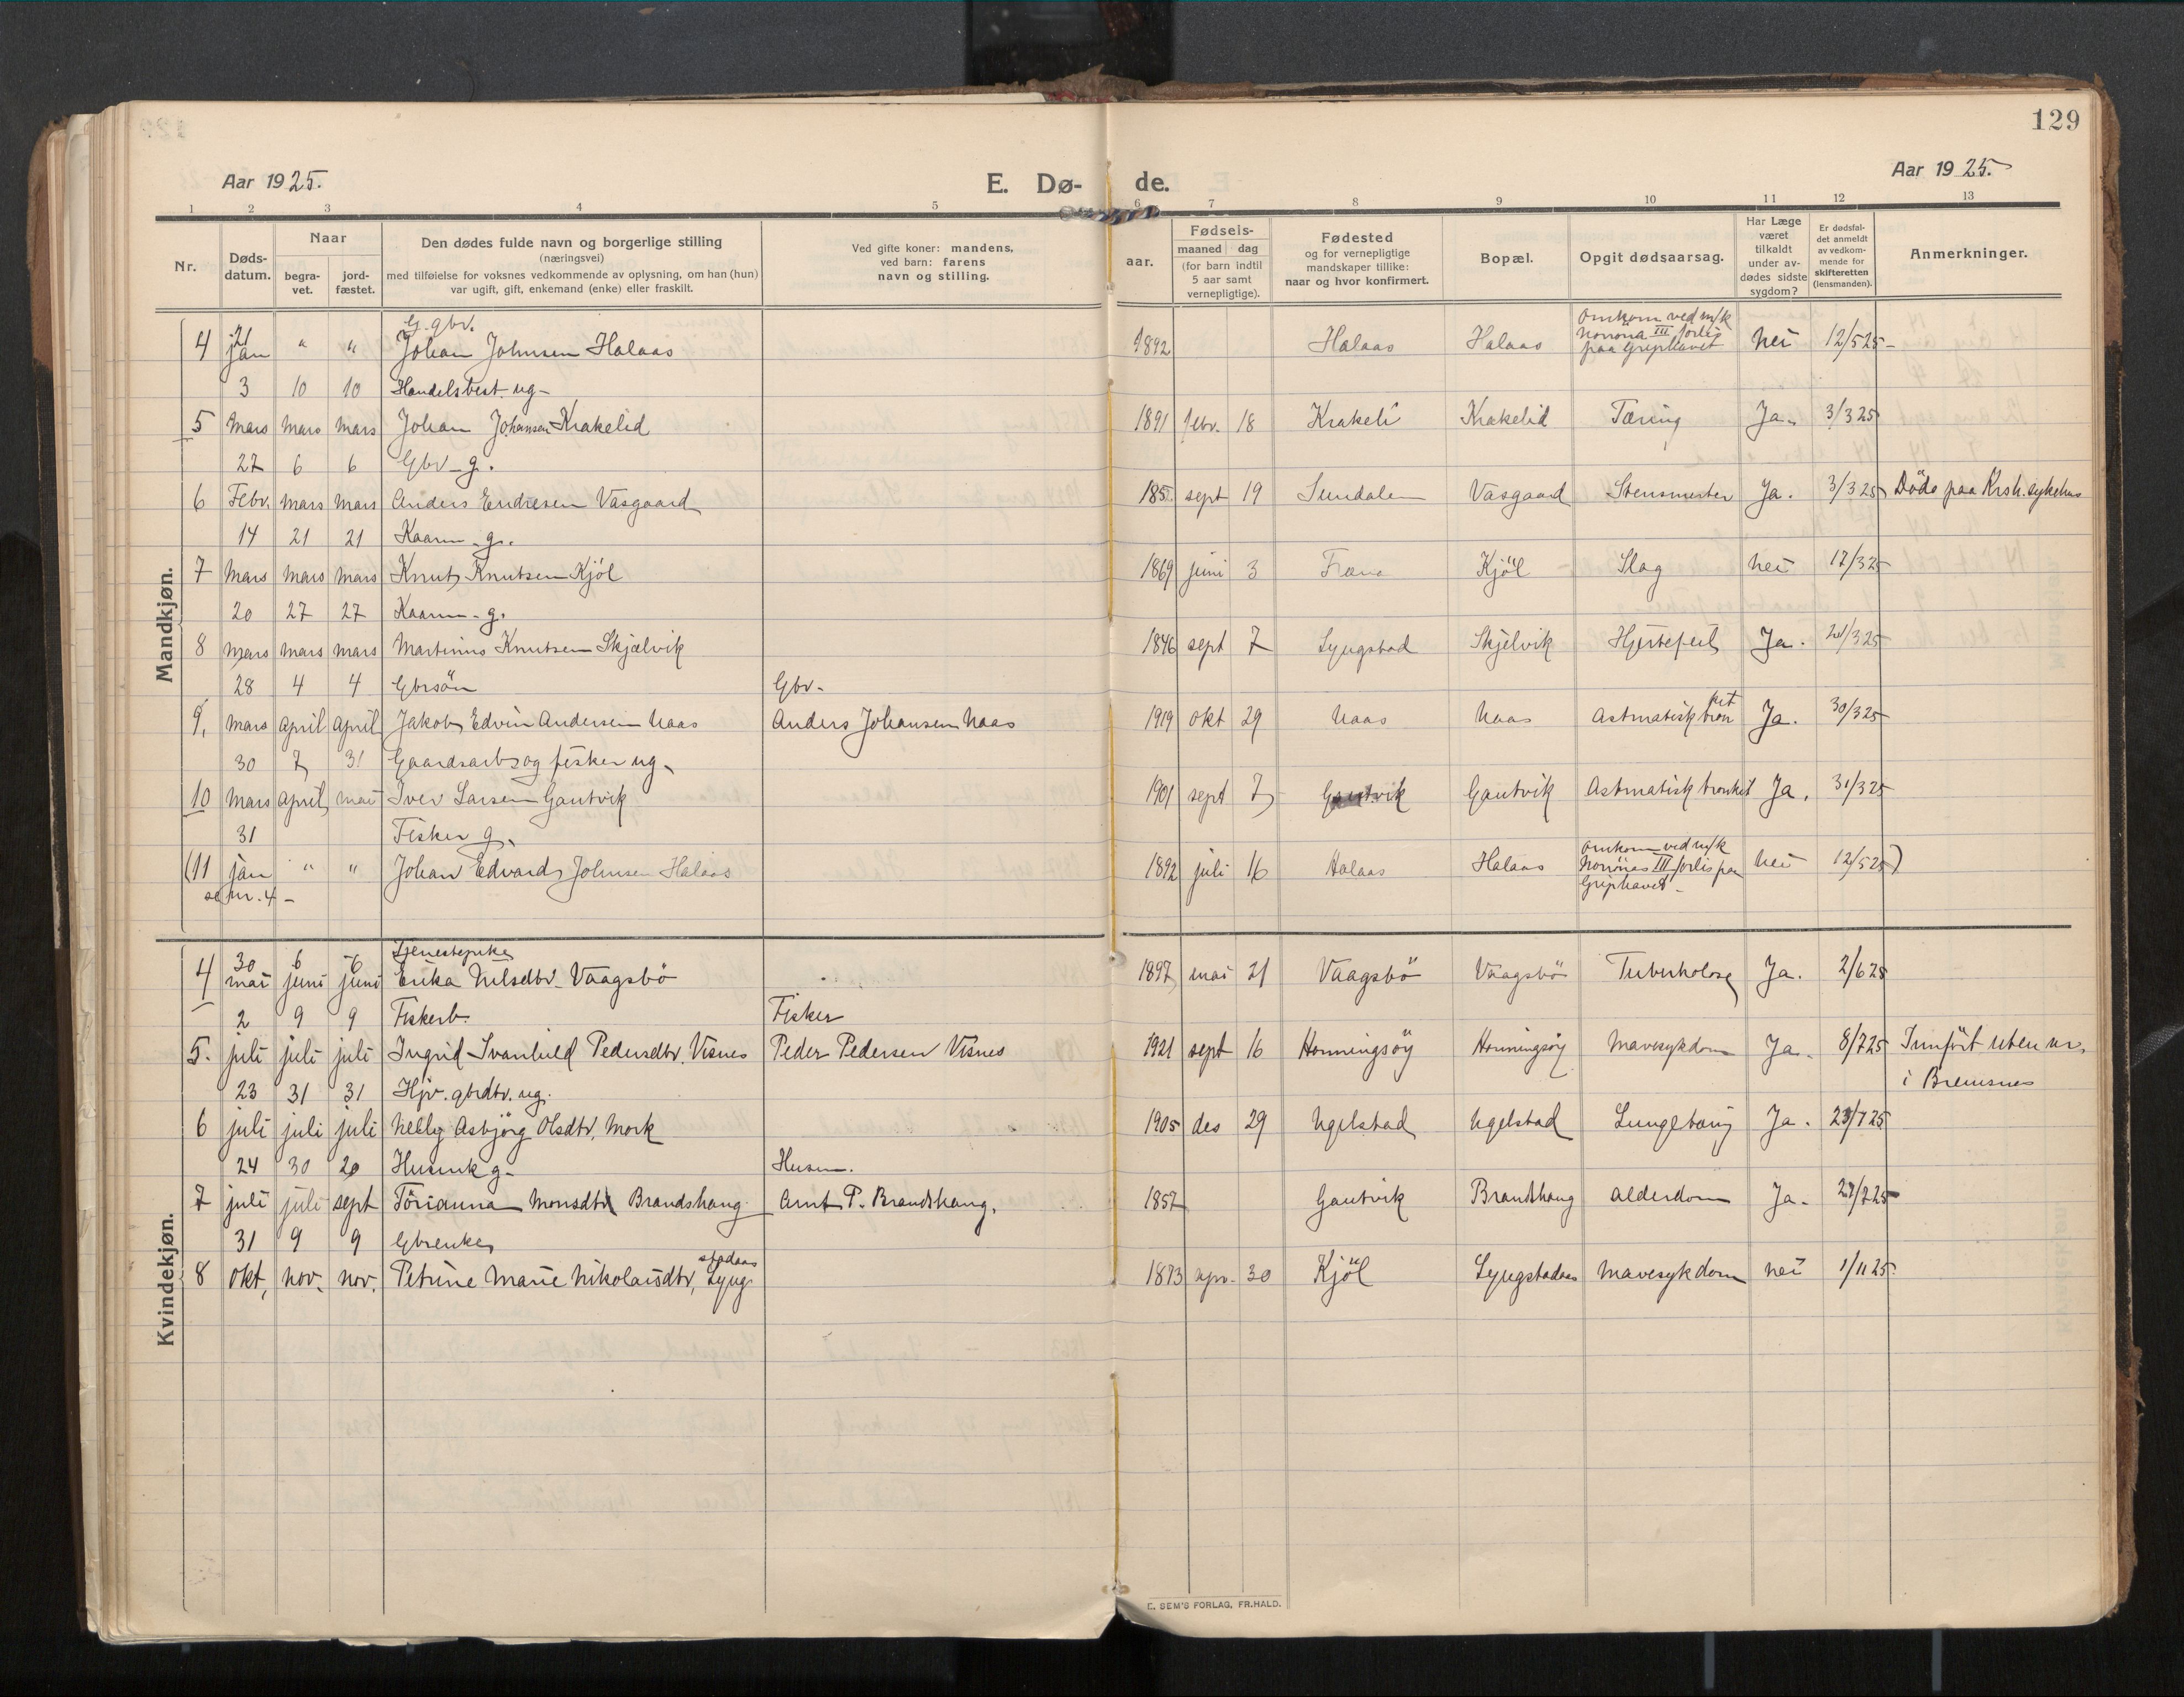 129
Aar 1925.
E. Dø- de.
Aar 1925.
1 2 3 4 5 6 7 8 9 10 11 12 13
Nr.
Døds-
datum.
Naar
begra-
vet.
jord-
fæstet.
Den dødes fulde navn og borgerlige stilling
(næringsvei)
med tilføielse for voksnes vedkommende av oplysning, om han (hun)
var ugift, gift, enkemand (enke) eller fraskilt.
Ved gifte koner: mandens,
ved barn: farens
navn og stilling.
Fødsels-
aar.
maaned dag
(for barn indtil
5 aar samt
vernepligtige).
Fødested
og for vernepligtige
mandskaper tillike:
naar og hvor konfirmert.
Bopæl.
Opgit dødsaarsag.
Har Læge
været
tilkaldt
under av-
dødes sidste
sygdom?
Er dødsfal-
det anmeldt
av vedkom-
mende for
skifteretten
(lensmanden).
Anmerkninger.
Mandkjøn.
21 G. gbr. Omkom ved m/k
4 jan " " Johan Johnsen Halaas 1892 Halaas Halaas Norröna III forlis nei 12/5 25-
paa Griphavet
3 10 10 Handelsbest. ug-
5 Mars Mars Mars Johan Johansen Krakelid 1891 febr. 18 Krakeli Krakelid Tæring Ja. 3/3 25
27 6 6 Gbr-g.
6 Febr. Mars Mars Anders Endresen Vasgaard 185 sept 19 Sundalen Vasgaard Ja. 3/3 25 Döde paa Krsh. sykehus
14 21 21 Kaarm-g.
7 Mars Mars Mars Knut Knutsen Kjöl 1869 juni 3 Fræna Kjöl Slag nei 17/3 25
20 27 27 Kaarm-g.
8 Mars Mars Mars Martinus Knutsen Skjælvik 1846 sept 7 Lyngstad Skjelvik Hjertefeil Ja. 21/3 25
28 4 4 Gbrsön Gbr-
9. Mars April April Jakob Edvin Andersen Naas Anders Johansen Naas 1919 okt 29 Naas Naas Astmatisk bronkit Ja. 30/3 25
30 7 31 Gaardsarb og fisker ug-
10 Mars April mai Iver Larsen Gautvik 1901 sept 7 Gautvik Gautvik Astmatisk bronkit Ja. 31/3 25
31 Fisker g. Omkom ved m/k
(11 jan " " Johan Edvard Johnsen Halaas 1892 juli 16 Halaas Halaas Norrönas III forlis paa nei 12/5 25)
se nr. 4- Griphavet-
Kvindekjøn.
30 6 6 Tjenestepike
4 mai juni juni Erika Nilsdtr. Vaagsbö 1897 mai 21 Vaagsbö Vaagsbö Tuberkolose Ja. 2/6 25
2 9 9 Fiskerb. Fisker
5. juli juli juli Ingrid Svanhild Pedersdtr. Visnes Peder Pedersen Visnes 1921 sept 16 Honningsöy Honningsöy Mavesykdom Ja. 8/7 25 Innfört uten nr.
i Bremsnes
23 31 31 Hjv. gbrdtr. ug.
6 juli juli juli Nelly Asbjörg Olsdtr. Mork 1905 des 29 Ugelstad Ugelstad Lungebetæ Ja. 23/7 25
24 30 20 Husmk g- Husm.
7 juli juli sept Törianna Monsdtr Brandshaug Arnt P. Brandshaug. 1857 Gautvik Brandshaug Alderdom Ja. 27/7 25
31 9 9 Gbrenke
8 okt, nov. nov. Petrine Marie Nikolaisdtr, Lyngstadaas 1873 30 Kjöl Lyngstadaas Mavesykdom nei 1/11 25.
E. SEM'S FORLAG, FR.HALD.